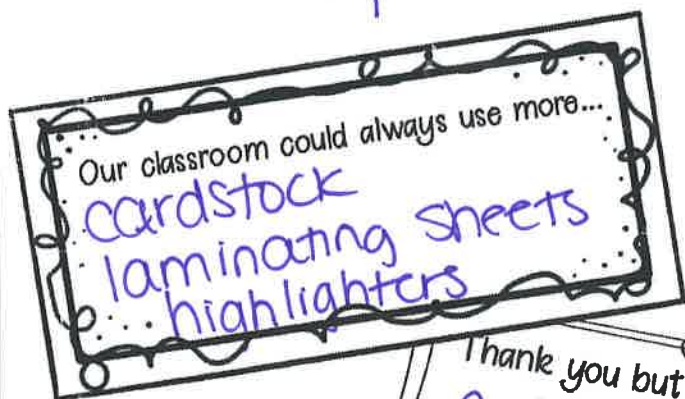 Our classroom could always use more...
cardstock
laminating sheets
highlighters
Thank you but